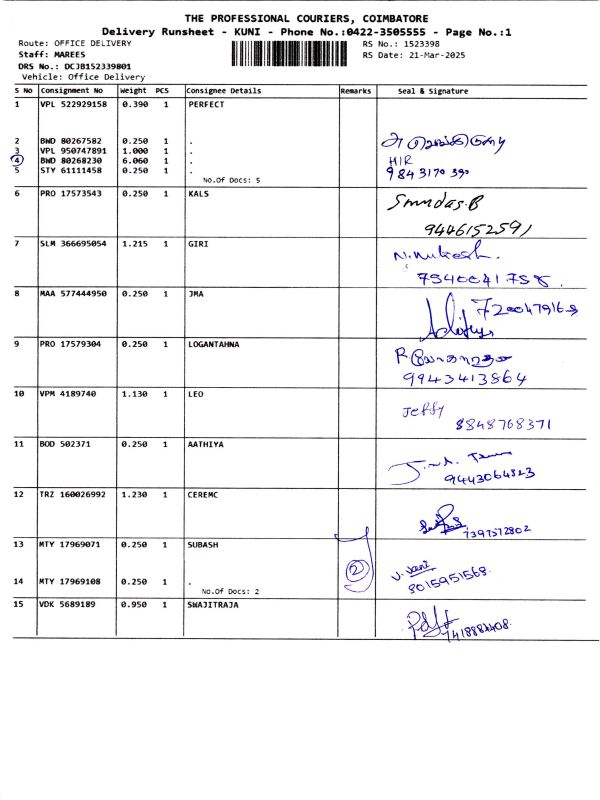 THE PROFESSIONAL COURIERS, COIMBATORE
Delivery Runsheet - KUNI - Phone No.:0422-3505555 - Page No.:1
Route: OFFICE DELIVERY RS No.: 1523398
Staff: MAREES RS Date: 21-Mar-2025
DRS No.: DCJB152339801
Vehicle: Office Delivery
S No Consignment No Weight PCS Consignee Details Remarks Seal & Signature
1 VPL 522929158 0.390 1 PERFECT
2 BWD 80267582 0.250 1 .
3 VPL 950747891 1.000 1 .
4 BWD 80268230 6.060 1 . HIR
5 STY 61111458 0.250 1 . 9843170390
No.Of Docs: 5
6 PRO 17573543 0.250 1 KALS
9446152591
7 SLM 366695054 1.215 1 GIRI N. Mukesh.
8 MAA 577444950 0.250 1 JMA
9 PRO 17579304 0.250 1 LOGANTAHNA
9943413864
10 VPM 4189740 1.130 1 LEO Jeffy
8848768371
11 BOD 502371 0.250 1 AATHIYA
9443064323
12 TRZ 160026992 1.230 1 CEREMC
7397572802
13 MTY 17969071 0.250 1 SUBASH
2 V. Vani
8015951568.
14 MTY 17969108 0.250 1 .
No.Of Docs: 2
15 VDK 5689189 0.950 1 SWAJITRAJA